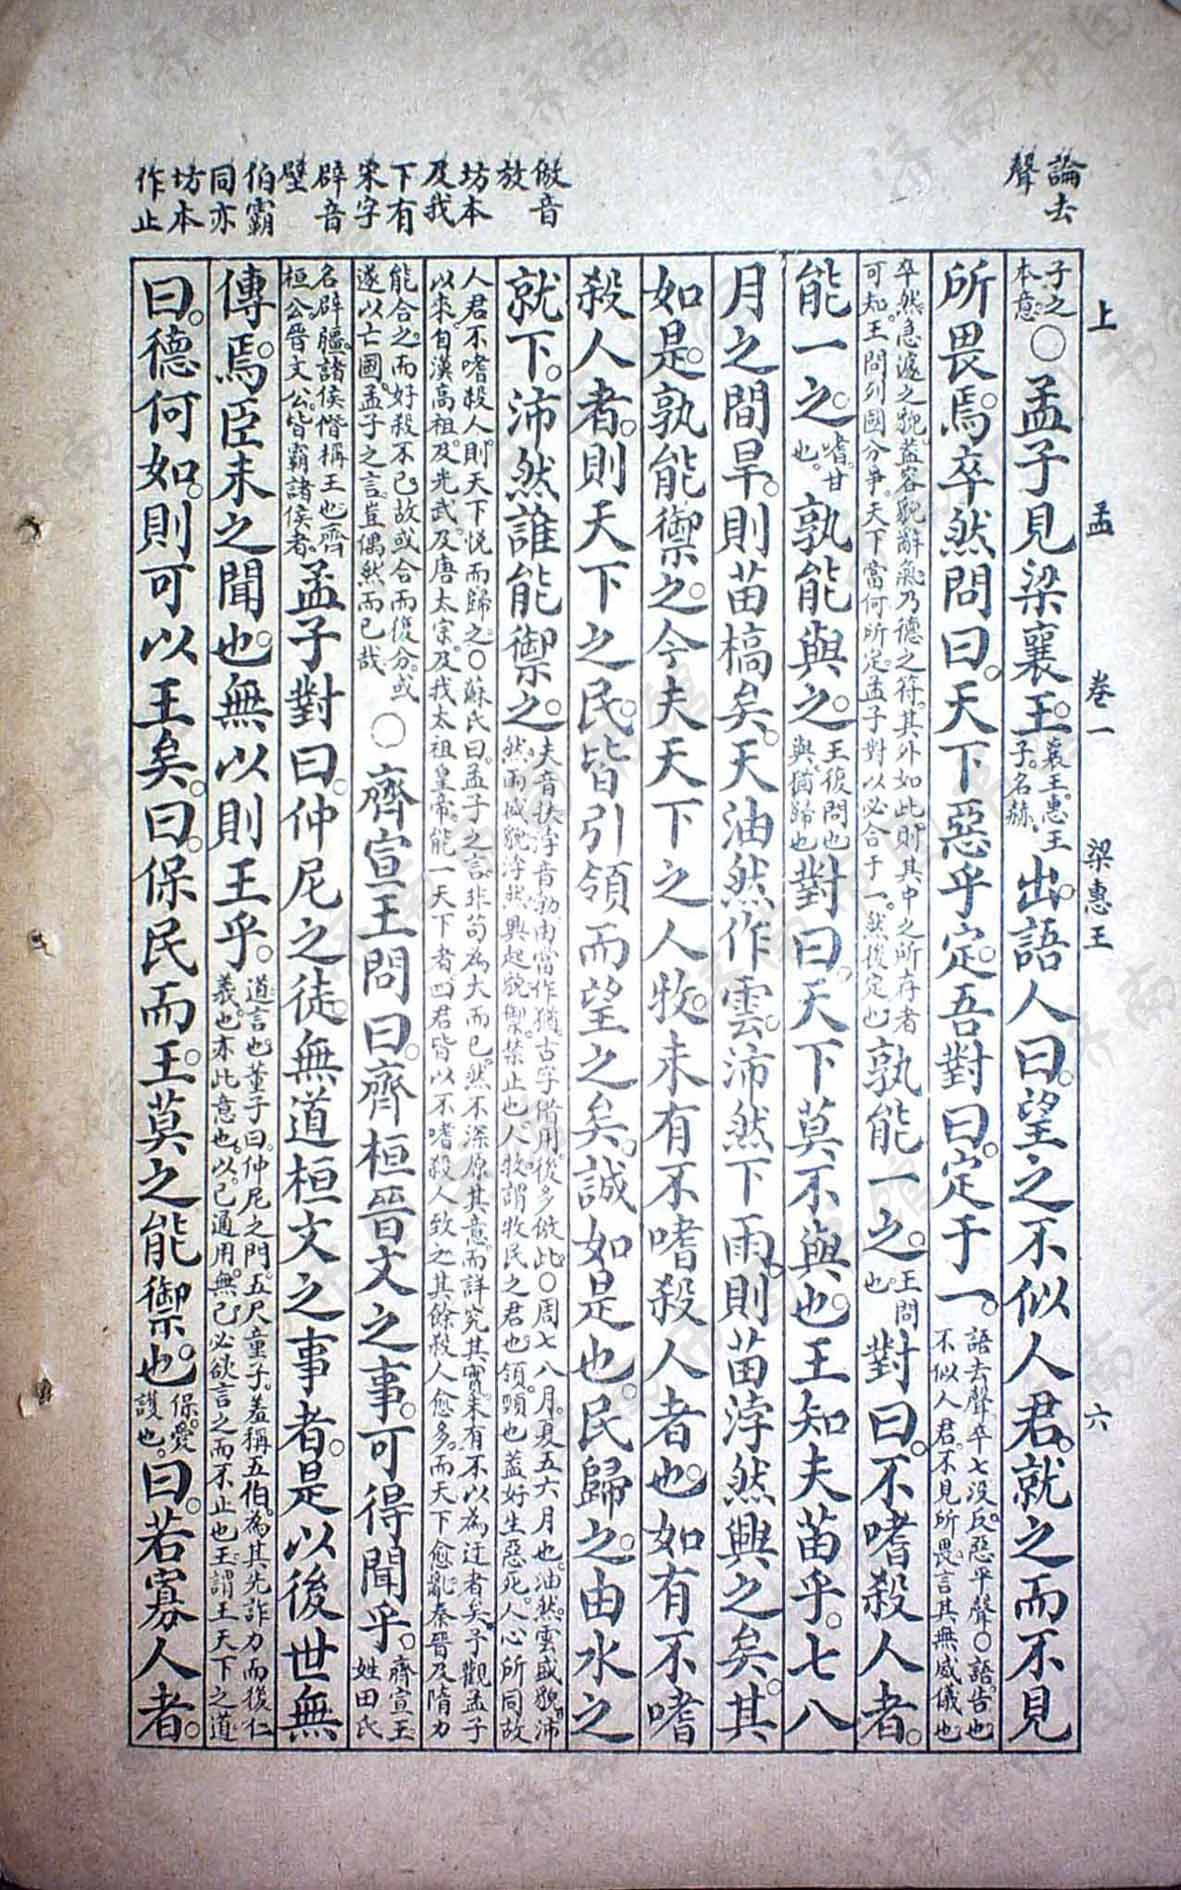 論去
聲
倣音
放
坊本
及我
下有
宋字
辟音
壁
伯霸
同亦
坊本
作止
上 孟 卷一 梁惠王 六
子之本意。○孟子見梁襄王。襄王惠王子。名赫。出語人曰。望之不似人君。就之而不見
所畏焉。卒然問曰。天下惡乎定。吾對曰。定于一。語去聲。卒七沒反。惡平聲。○語。告也。不似人君。不見所畏。言其無威儀也。
卒然急遽之貌。蓋容貌辭氣乃德之符。其外如此。則其中之所存者可知。王問列國分爭。天下當何所定。孟子對以必合于一。然後定也。孰能一之。王問也。對曰。不嗜殺人者。
能一之。嗜。甘也。孰能與之。王復問也。與猶歸也。對曰。天下莫不與也。王知夫苗乎。七八
月之間旱。則苗槁矣。天油然作雲。沛然下雨。則苗浡然興之矣。其
如是。孰能禦之。今夫天下之人牧。未有不嗜殺人者也。如有不嗜
殺人者。則天下之民。皆引領而望之矣。誠如是也。民歸之。由水之
就下。沛然誰能禦之。夫音扶。浡音勃。由當作猶。古字借用。後多倣此。○周七八月。夏五六月也。油然。雲盛貌。沛然。雨盛貌。浡然。興起貌。禦。禁止也。人牧。謂牧民之君也。領。頸也。蓋好生惡死。人心所同。故
人君不嗜殺人。則天下悅而歸之。○蘇氏曰。孟子之言。非苟為大而已。然不深原其意。而詳究其實。未有不以為迂者矣。予觀孟子以來。自漢高祖。及光武。及唐太宗。及我太祖皇帝。能一天下者四君。皆以不嗜殺人致之。其餘殺人愈多。而天下愈亂。秦晉及隋力
能合之。而好殺不已。故或合而復分。或遂以亡國。孟子之言。豈偶然而已哉。○齊宣王問曰。齊桓晉文之事。可得聞乎。齊宣王姓田氏
名辟疆。諸侯僭稱王也。齊桓公。晉文公。皆霸諸侯者。孟子對曰。仲尼之徒。無道桓文之事者。是以後世無
傳焉。臣未之聞也。無以則王乎。道言也。董子曰。仲尼之門。五尺童子。羞稱五伯。為其先詐力而後仁義也。亦此意也。以已通用。無已必欲言之而不止也。王謂王天下之道
曰。德何如。則可以王矣。曰。保民而王。莫之能禦也。保。愛護也。曰。若寡人者。